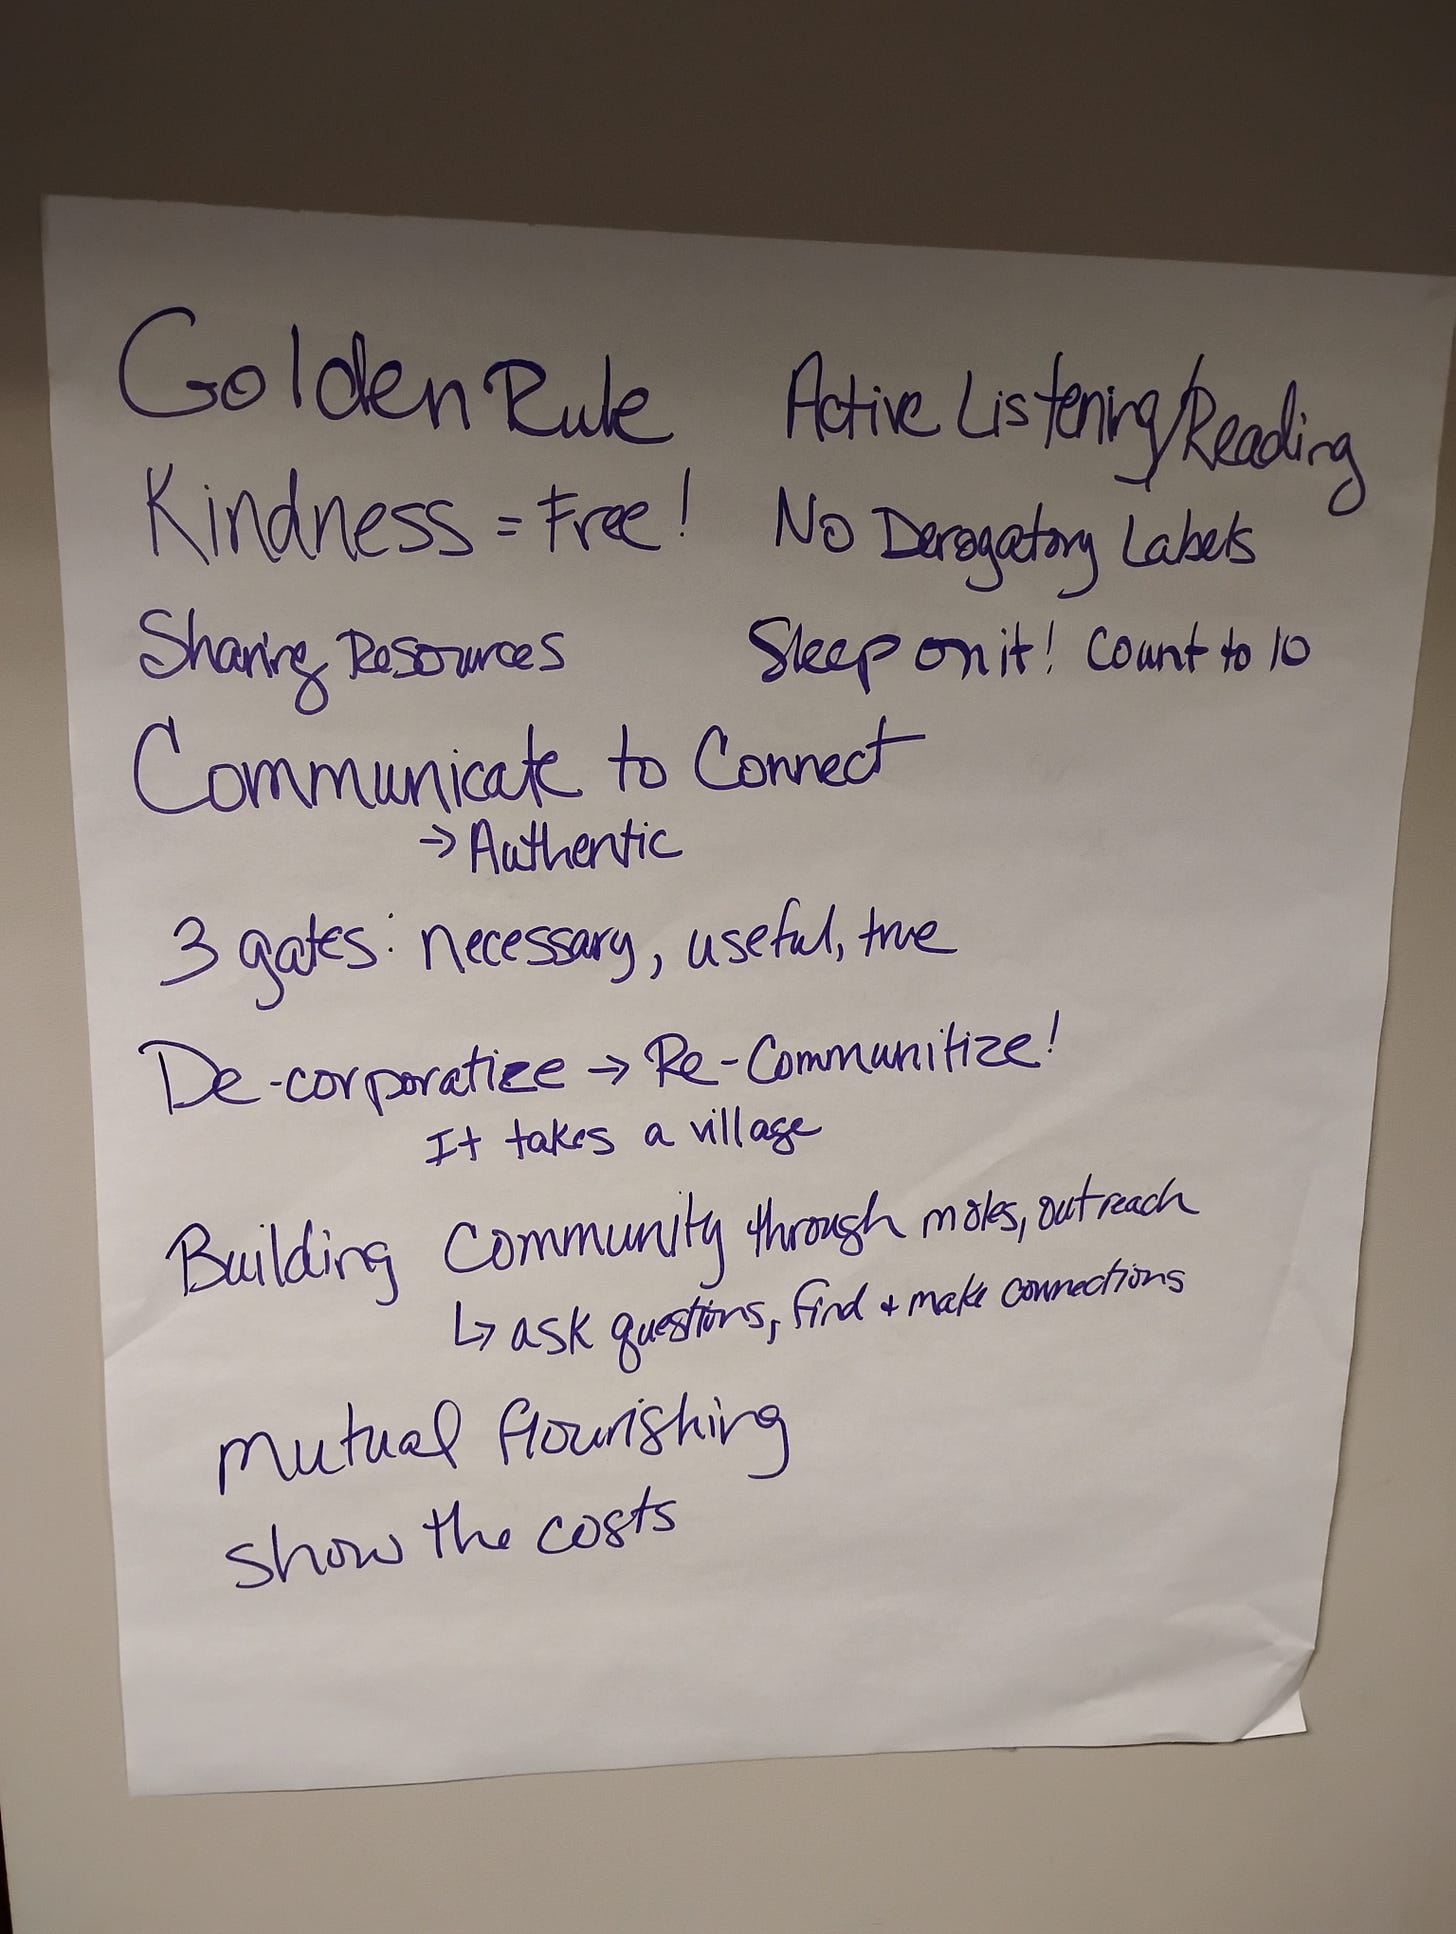 Golden Rule
Kindness = Free!
Sharing Resources
Active Listening/Reading
No Derogatory Labels
Sleep on it! Count to 10
Communicate to Connect
→ Authentic
3 gates: necessary, useful, true
De-corporatize → Re-Communitize!
It takes a village
Building Community through moles, outreach
↳ ask questions, find + make connections
mutual flourishing
show the costs